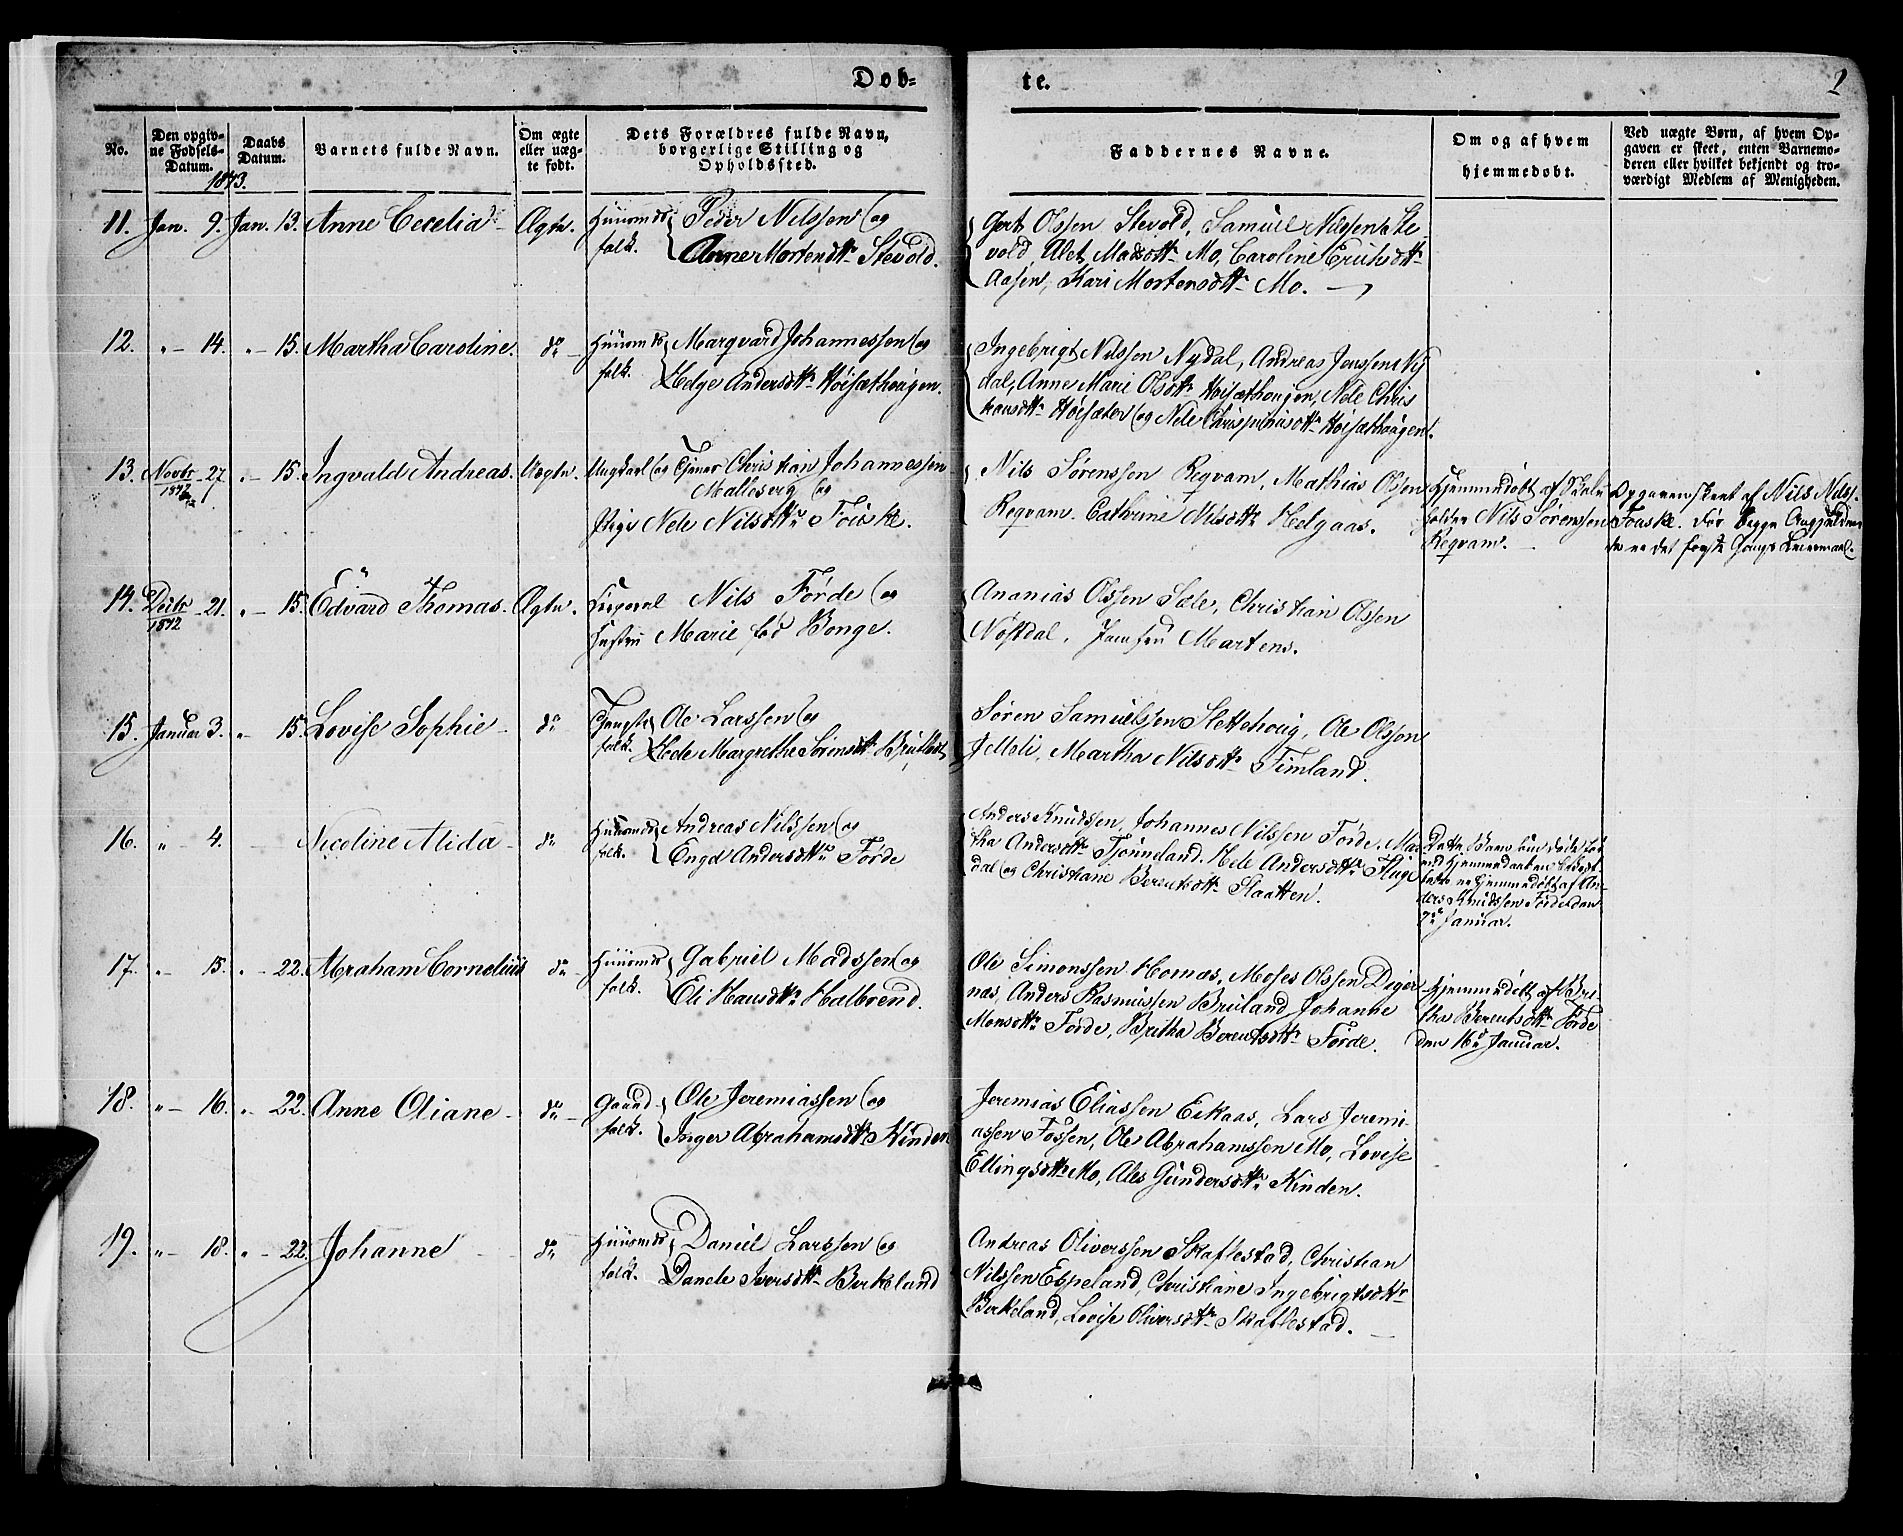 Døb-
te.
2
No.
Den opgiv-
ne Fødsels-
Datum.
Daabs
Datum.
Barnets fulde Navn.
Om ægte
eller uæg-
te født.
Dets Forældres fulde Navn,
borgerlige Stilling og
Opholdssted.
Faddernes Navne.
Om og af hvem
hjemmedøbt.
Ved uægte Børn, af hvem Op-
gaven er skeet, enten Barnemo-
deren eller hvilket bekjendt og tro-
værdigt Medlem af Menigheden.
1843.
11. Jan. 9. Jan. 13. Anne Cecelia Ægte.
Huusmds
folk.
Peder Nilssen og
Anne Mortensdtr Stevold.
Gert Olssen Stevold, Samuel Nilssen Ste
vold, Alet Madsdttr Mo, Caroline Eriksdttr
Aasen, Kari Mortensdttr Mo.
12. " 14. " 15. Martha Caroline. do
Huusmds
folk.
Marqvard Johannessen og
Helge Andersdttr Høisæthougen.
Ingebrigt Nilssen Nydal, Andreas Jenssen Ny
dal, Anne Marie Olsdttr Høisæthougen, Nele Chris
tensdttr Høisæter og Nele Chrispinusdttr Høisæthougen.
13. Novbr 27 " 15. Ingvald Andreas. Uægte.
1842
Ungkarl og Tjener Christian Johannessen
Mallesvrg og
Pige Nele Nilsdttr Fouske.
Nils Sørenssen Reqvam, Mathias Olssen
Reqvam. Cathrine Nilsdttr Helgaas.
Hjemmedøbt af Skole
holder Nils Sørenssen
Reqvam.
Opgaven skeet af Nils Nilss.
Fouske. For begge Angjældene
de er det første Gangs Leiermaal.
14. Decbr 21. " 15. Edvard Thomas. Ægte.
1842
Corporal Nils Førde og
Hustru Marie fød Bonge.
Ananias Olssen Sæle, Christian Olssen
Nøstdal, Jomfru Martens.
15. Januar 3. " 15. Lovise Sophie do
Tjeneste
folk.
Ole Larssen og
Hele Margrethe Sørensdttr Bruland
Søren Samuelssen Slettehoug, Ole Olssen
Meli, Martha Nilsdttr Timland.
16. " 4. Nicoline Alida do
Huusmds
folk.
Andreas Nilssen og
Engel Andersdttr Førde
Anders Knudssen, Johannes Nilssen Førde. Mar
tha Andersdttr Tjønneland. Hele Andersdttr Huge
dal og Christiane Berentsdttr Slaatten.
Dette Barn kun døde før
end Hjemmedaaben
er hjemmedøbt af An-
ders Knudssen Førde den
7de Januar.
17. " 15. " 22. Abraham Cornelius do
Huusmds
folk.
Gabriel Madssen og
Eli Hansdttr Halbrend.
Ole Simonssen Hornæs, Moses Olssen Diger
næs, Anders Rasmussen Bruland, Johanne
Monsdttr Førde, Britha Berentsdttr Førde.
Hjemmedøbt af Bri-
tha Berentsdttr Førde
den 16de Januar.
18. " 16. " 22. Anne Oliane do
Gaard-
folk.
Ole Jeremiassen og
Inger Abrahamsdttr Kinden
Jeremias Eliassen Eikaas, Lars Jeremi-
assen Fossen, Ole Abrahamssen Mo, Lovise
Ellingsdttr Mo, Ales Gundersdttr Kinden.
19. " 18. " 22. Johanne do
Huusmds
folk.
Daniel Larssen og
Danele Iversdttr Birkeland
Andreas Oliverssen Skaflestad, Christian
Nilssen Espeland, Christiane Ingebrigtsdttr
Birkeland, Lovise Oliversdttr Skaflestad.